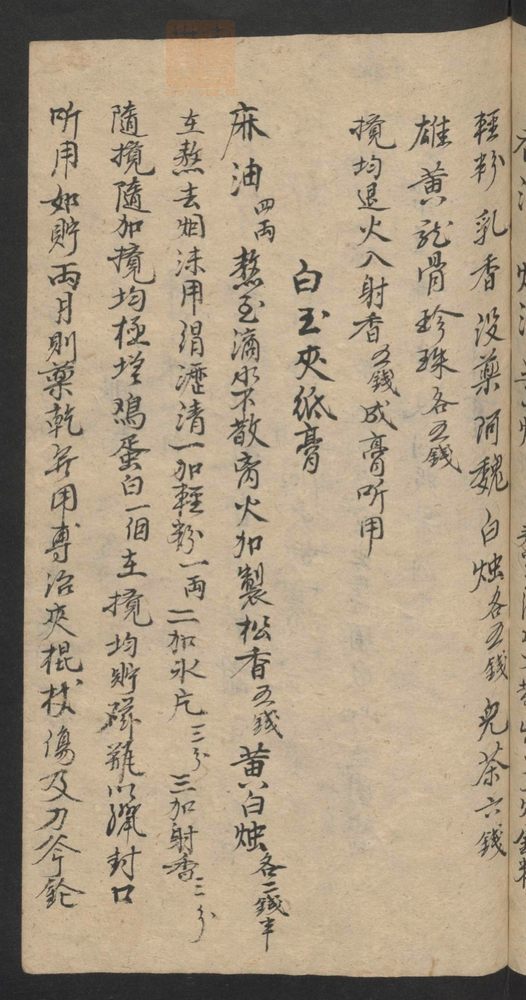 輕粉乳香沒藥阿魏白烛各五錢兒茶六錢
雄黃龍骨珍珠各五錢
攪均退火入射香五錢成膏听用
白玉夾紙膏
麻油四兩熬至滴水不散离火加製松香五錢黃白烛各二錢半
在熬去烟沫用绢瀝清一加輕粉一兩二加氷片三分三加射香二分
隨攪隨加攪均極增鴉蛋白一個在攪均貯磁瓶以蠟封口
听用如貯兩月則藥乾另用專治夾棍杖傷及刀斧